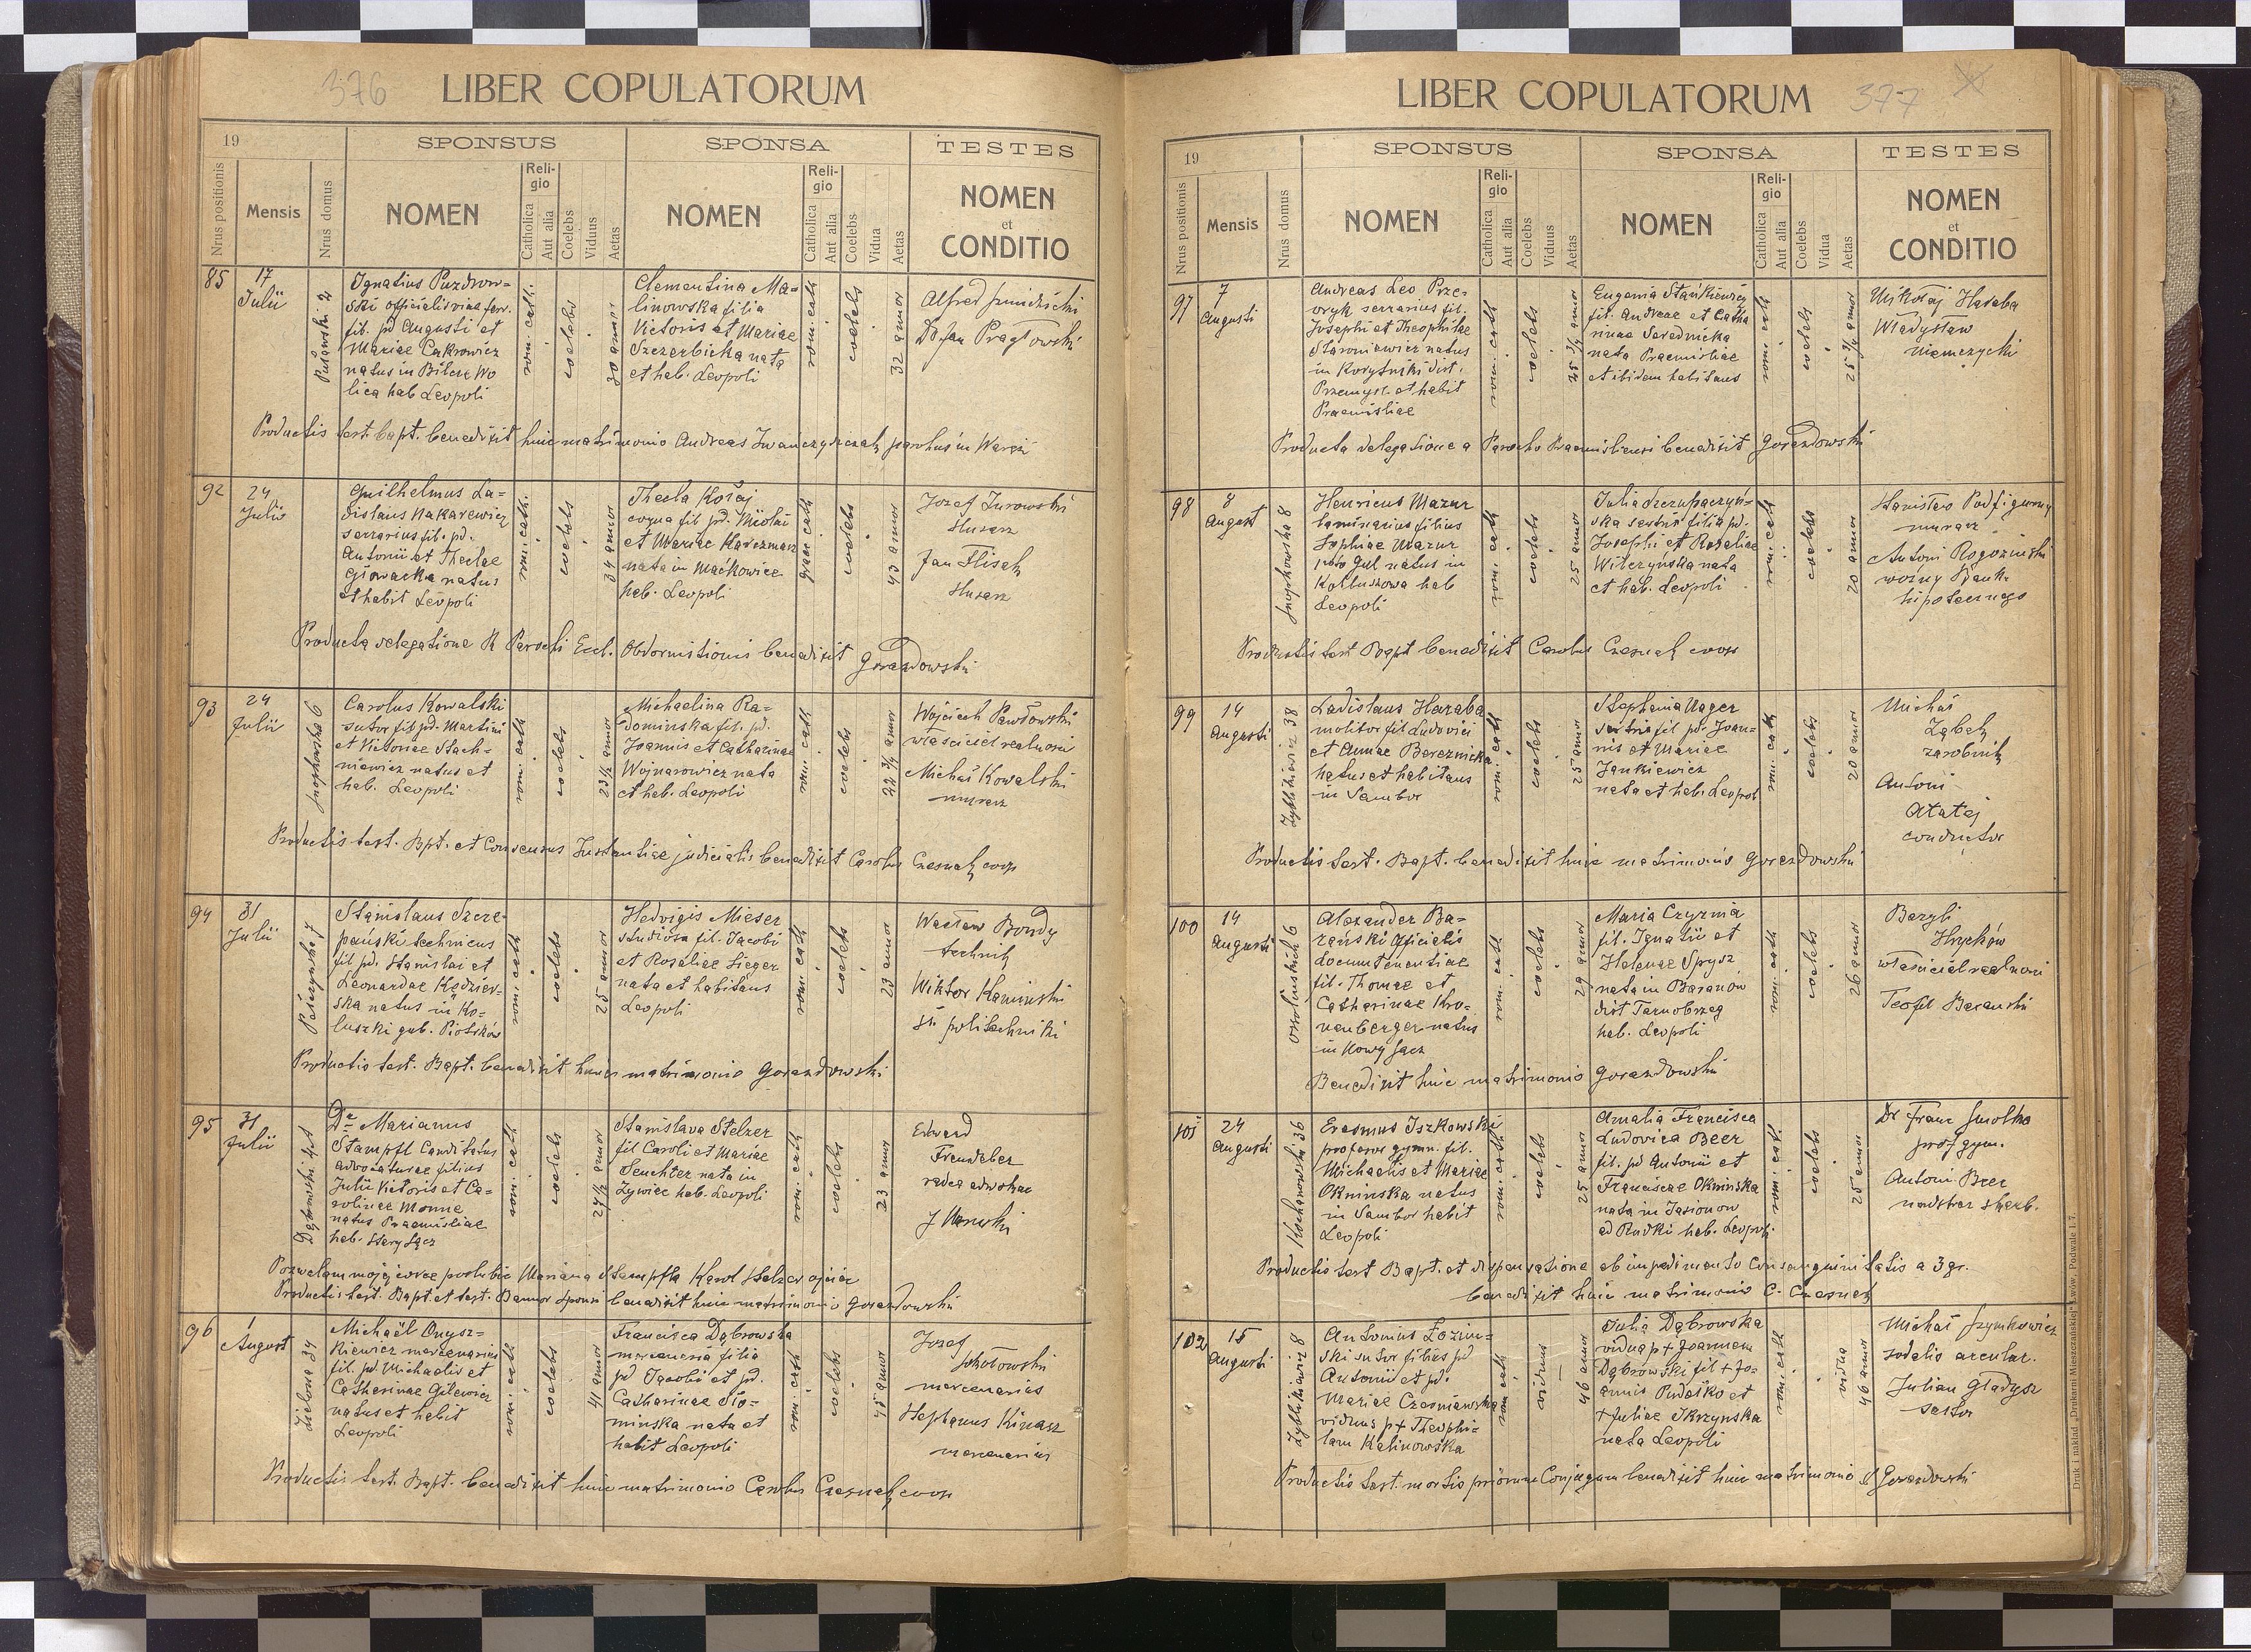 376
LIBER COPULATORUM
19
SPONSUS
SPONSA
TESTES
Nrus positionis
Mensis
Nrus domus
NOMEN
Religio
Catholica
Aut alia
Coelebs
Viduus
Aetas
NOMEN
Religio
Catholica
Aut alia
Coelebs
Vidua
Aetas
NOMEN
et
CONDITIO
85
17
Julii
2
Ignatius
fil. pd Augusti et
Mariae
natus in
lica hab Leopoli
rom. cath.
coelebs
30 annor
Clementina Ma=
linowska filia
Victoris et Mariae
Szczerbicka nata
et hab. Leopoli
rom. cath
coelebs
32 annor
Alfred
Dr Jan Pragłowski
Productis test. bapt. benedixit huic matrimonio Andreas parochus in
92
24
Julii
Guilhelmus La=
dislaus Makarewicz
serrarius fil. pd.
Antonii et Theclae
Głowacka natus
et habit Leopoli
rom. cath.
coelebs
34 annor
Thecla
fil pd.
et Mariae Karczmarz
nata in Maćkowice
hab. Leopoli
graec cath
coelebs
43 annor
Jozef Jurowski
Jan Flisak
Producta delegatione R Parochi Eccl. Obdormitionis benedixit Gorazdowski
93
24
Julii
6
Carolus Kowalski
sutor fil pd. Martini
et Victoriae Stach=
niewicz natus et
hab. Leopoli
rom. cath
coelebs
23 1/2 annor
Michaelina Ra=
dominska fil. pd.
Joannis et Catharinae
Wojnarowicz nata
et hab. Leopoli
rom. cath
coelebs
22 3/4 annor
Wojciech Pawłowski
właściciel realności
Michał Kowalski
murarz
Productis test. Bpt. et Consensus Instantiae judicialis benedixit Carolus Czesnak coop
94
31
Julii
7
Stanislaus Szcze=
pański technicus
fil pd. Stanislai et
Leonardae Kędzier=
ska natus in Ko=
luszki gub. Piotrków
rom. cath
coelebs
25 annor
Hedvigis Mieser
studiosa fil. Jacobi
et Rosaliae Sieger
nata et habitans
Leopoli
rom. cath
coelebs
23 annor
Wacław Bondy
technik
Wiktor Kaminski
st. politechniki
Productis test. Bapt. benedixit huic matrimonio Gorazdowski
95
31
Julii
Dr Marianus
Stampfl Canditatus
advocaturae filius
Julii Victoris et Ca=
rolinae Monne
natus Praemisliae
hab. Stary Sącz
rom. cath
coelebs
Stanislava Stelzer
fil Caroli et Mariae
Seuchter nata in
Żywiec hab. Leopoli
rom. cath
coelebs
23 annor
Edward
radca
Pozwalam mojej córce poślubić Mariana Stampfla Karol Stelzer ojciec
Productis test. Bapt. et test. Bannor sponsi benedixit huic matrimonio Gorazdowski
96
1
August
Zielona 34
Michaël Onysz=
kiewicz mercenarius
fil. pd Michaelis et
Catharinae Gilewicz
natus et habit
Leopoli
rom. cath
coelebs
41 annor
Francisca Dąbrowska
mercenaria filia
pd Jacobi et pd.
Catharinae Sło=
minska nata et
habit Leopoli
rom. cath
coelebs
45 annor
Jozef
Sokołowski
mercenarius
Stephanus Kinasz
mercenarius
Productis test. Bapt. benedixit huic matrimonio Carolus Czesnak coop
LIBER COPULATORUM
377
19
SPONSUS
SPONSA
TESTES
Nrus positionis
Mensis
Nrus domus
NOMEN
Religio
Catholica
Aut alia
Coelebs
Viduus
Aetas
NOMEN
Religio
Catholica
Aut alia
Coelebs
Vidua
Aetas
NOMEN
et
CONDITIO
97
7
Augusti
Andreas Leo Prze=
woryk serrarius fil.
Josephi et Theophilae
natus
in Korytniki dist.
Przemysl. et habit
Praemisliae
rom. cath
coelebs
25 3/4 annor
Eugenia Stańkiewicz
fil. Andreae et Catha
rinae Serednicka
nata Praemisliae
et ibidem habitans
rom. cath
coelebs
25 3/4 annor
Mikołaj Haraba
Władysław
Niemczycki
Producta delegatione a Parocho Praemisliensi benedixit Gorazdowski
98
8
August
8
Henricus Mazur
laminarius filius
Sophiae Mazur
natus in
Kolbuszowa hab
Leopoli
rom. cath
coelebs
25 annor
Julia
filia pd.
Josephi et Rosaliae
Wilczynska nata
et hab. Leopoli
rom. cath
coelebs
20 annor
Stanisław
murarz
Antoni Rogozinski
woźny Bank.
hipotecznego
Productis test Bapt benedixit Carolus Czesnak coop
99
14
Augusti
38
Ladislaus Haraba
molitor fil Ludovici
et Annae Bereznicka
natus et habitans
in Sambor
rom. cath
coelebs
25 annor
Stephania Nager
fil pd. Joan=
nis et Mariae
Jankiewicz
nata et hab. Leopol
rom. cath
coelebs
20 annor
Michał
Ząbek
zarobnik
Antoni
conductor
Productis test. Bapt. benedixit huic matrimonio Gorazdowski
100
14
Augusti
Ossolinskich 6
Alexander Ba=
rański officialis
Locumtenentiae
fil. Thomae et
Catharinae Kro=
nenberger natus
in Nowy Sącz
rom. cath
coelebs
29 annor
Maria Czyrnia
fil. Ignatii et
Helenae Spysz
nata in Baranów
dist Tarnobrzeg
hab. Leopoli
rom. cath
coelebs
26 annor
Bazyli
Hryćków
właściciel realności
Teofil Baranski
Benedixit huic matrimonio Gorazdowski
101
24
Augusti
Kochanowski 36
Erasmus Iszkowski
profesor gymn. fil.
Michaelis et Mariae
Okninska natus
in Sambor habit
Leopoli
rom. cath
coelebs
25 annor
Amalia Francisca
Ludovica Beer
fil. pd Antonii et
Franciscae Okninska
nata in Jasionow
ad Rudki hab. Leopoli
rom. cath
coelebs
25 annor
Dr Franc Smolka
prof gym.
Antoni Beer
nadstraż skarb.
Productis test Bapt. et dispensatione ab impedimento Consanguinitatis a 3 gr.
benedixit huic matrimonio C. Czesnak
102
15
Augusti
8
Antonius Łozin=
ski sutor filius pd
Antonii et pd.
Mariae
viduus p+ Theophi=
lam Kalinowska
rom. cath
viduus
46 annor
Julia Dąbrowska
vidua p+ Joannem
Dąbrowski fil + Jo=
annis Pudełko et
+ Juliae Skrzynska
nata Leopoli
rom. cath
vidua
46 annor
Michał Szymkowicz
sodalis arcular.
Julian Gładysz
Productis test. mortis priorum Conjugum benedixit huic matrimonio Gorazdowski
Druk i nakład „Drukarni Mieszczańskiej" Lwów, Podwale l. 7.